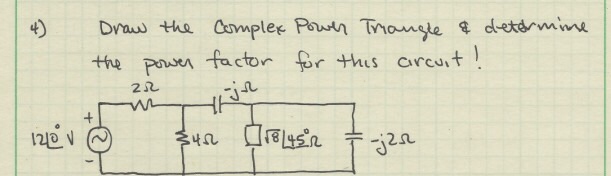 4) Draw the Complex Power Triangle & determine
the power factor for this circuit!
2Ω -jΩ
+
12∠0° V 4Ω √8∠45°Ω -j2Ω
-